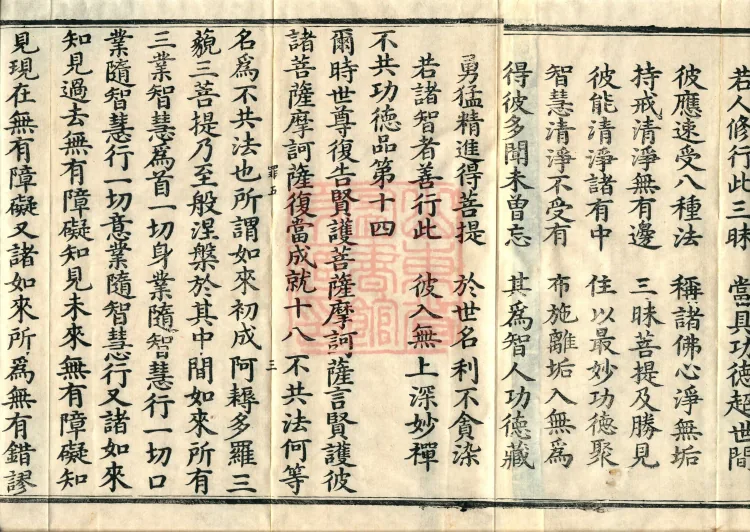 若人修行此三昧　當具功德超世間
彼應速受八種法　稱諸佛心淨無垢
持戒清淨無有邊　三昧菩提及勝見
彼能清淨諸有中　住以最妙功德聚
智慧清淨不受有　布施離垢入無爲
得彼多聞未曾忘　其爲智人功德藏
勇猛精進得菩提　於世名利不貪染
若諸智者善行此　彼入無上深妙禪
不共功德品第十四
爾時世尊復告賢護菩薩摩訶薩言賢護彼
諸菩薩摩訶薩復當成就十八不共法何等
罪五　三
名爲不共法也所謂如來初成阿耨多羅三
藐三菩提乃至般涅槃於其中間如來所有
三業智慧爲首一切身業隨智慧行一切口
業隨智慧行一切意業隨智慧行又諸如來
知見過去無有障礙知見未來無有障礙知
見現在無有障礙又諸如來所爲無有錯謬